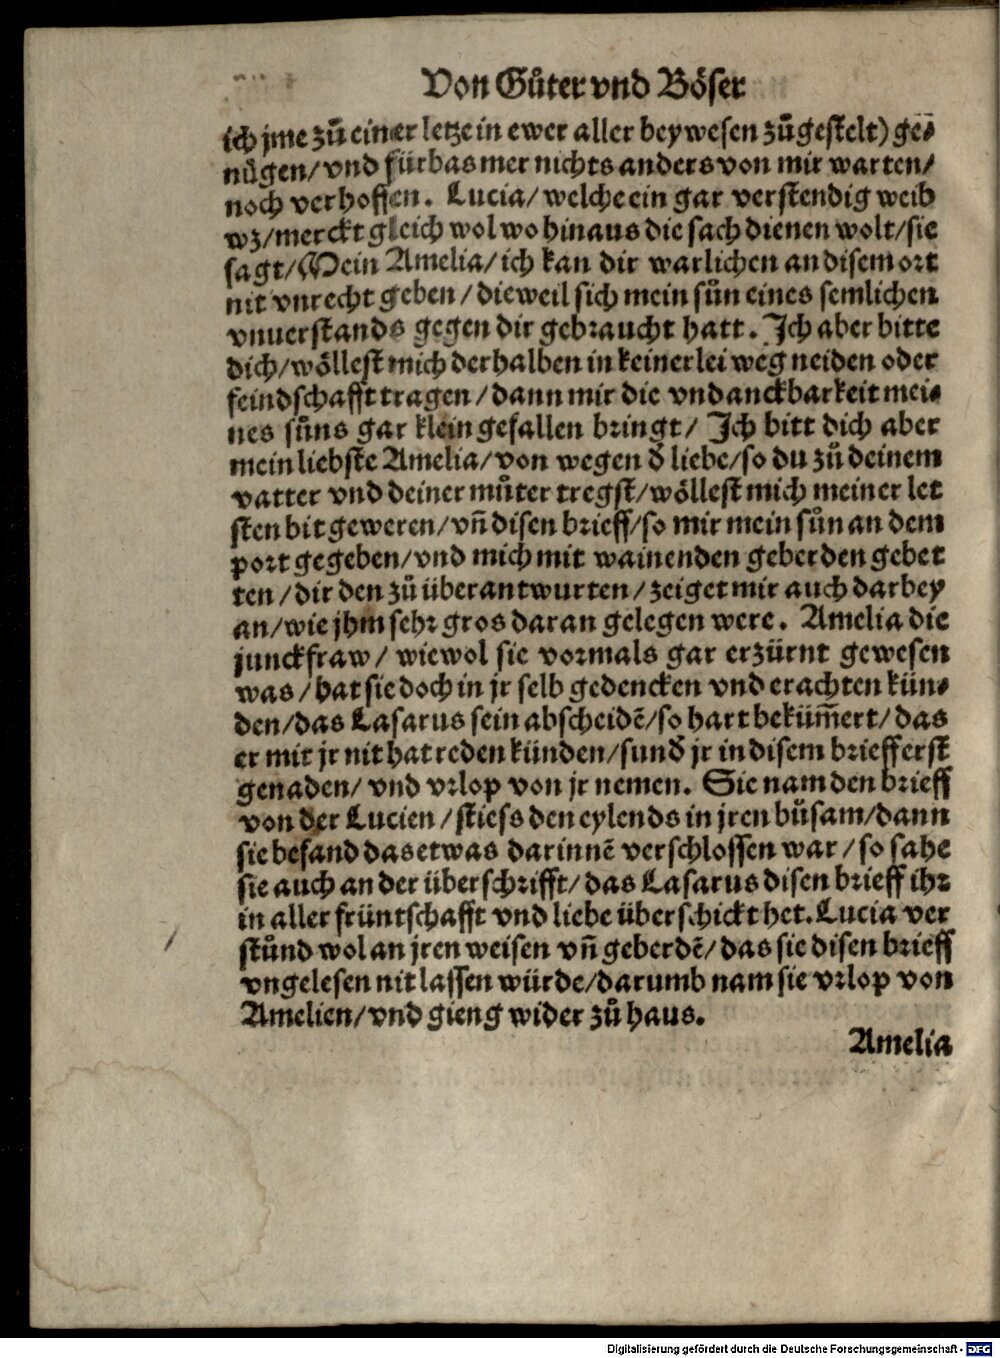 Von Gůter vnd Böser
ich jme zů einer letze in ewer aller beywesen zůgestelt) ge⸗
nůgen/vnd fürbas mer nichts anders von mir warten/
noch verhoffen. Lucia/welche ein gar verstendig weib
wz/merckt gleich wol wo hinaus die sach dienen wolt/sie
sagt/Mein Amelia/ich kan dir warlichen an disem ort
nit vnrecht geben/dieweil sich mein sůn eines semlichen
vnuerstands gegen dir gebraucht hatt. Jch aber bitte
dich/wöllest mich derhalben in keinerlei weg neiden oder
feindschafft tragen/dann mir die vndanckbarkeit mei⸗
nes sůns gar klein gefallen bringt/ Jch bitt dich aber
mein liebste Amelia/von wegen d̄ liebe/so du zů deinem
vatter vnd deiner můter tregst/wöllest mich meiner let
sten bit geweren/vn̄ disen brieff/so mir mein sůn an dem
port gegeben/vnd mich mit wainenden geberden gebet
ten/dir den zů überantwurten/zeiget mir auch darbey
an/wie jhm sehr gros daran gelegen were. Amelia die
junckfraw/ wiewol sie vormals gar erzürnt gewesen
was/hat sie doch in jr selb gedencken vnd erachten kün⸗
den/das Lasarus sein abscheidē/so hart beküm̄ert/das
er mit jr nit hat reden künden/sund̄ jr in disem brieff erst
genaden/ vnd vrlop von jr nemen. Sie nam den brieff
von der Lucien/stiess den eylends in jren bůsam/dann
sie befand das etwas darinnē verschlossen war/so sahe
sie auch an der überschrifft/das Lasarus disen brieff ihr
in aller früntschafft vnd liebe überschickt het. Lucia ver
stůnd wol an jren weisen vn̄ geberdē/das sie disen brieff
vngelesen nit lassen würde/darumb nam sie vrlop von
Amelien/vnd gieng wider zů haus.
Amelia
Digitalisierung gefördert durch die Deutsche Forschungsgemeinschaft - DFG